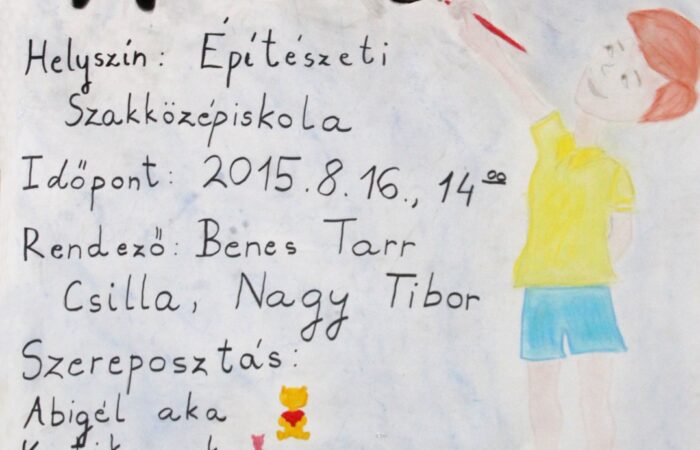 Helyszín: Építészeti
Szakközépiskola
Időpont: 2015.8.16., 14⁰⁰
Rendező: Benes Tarr
Csilla, Nagy Tibor
Szereposztás:
Abigél aka